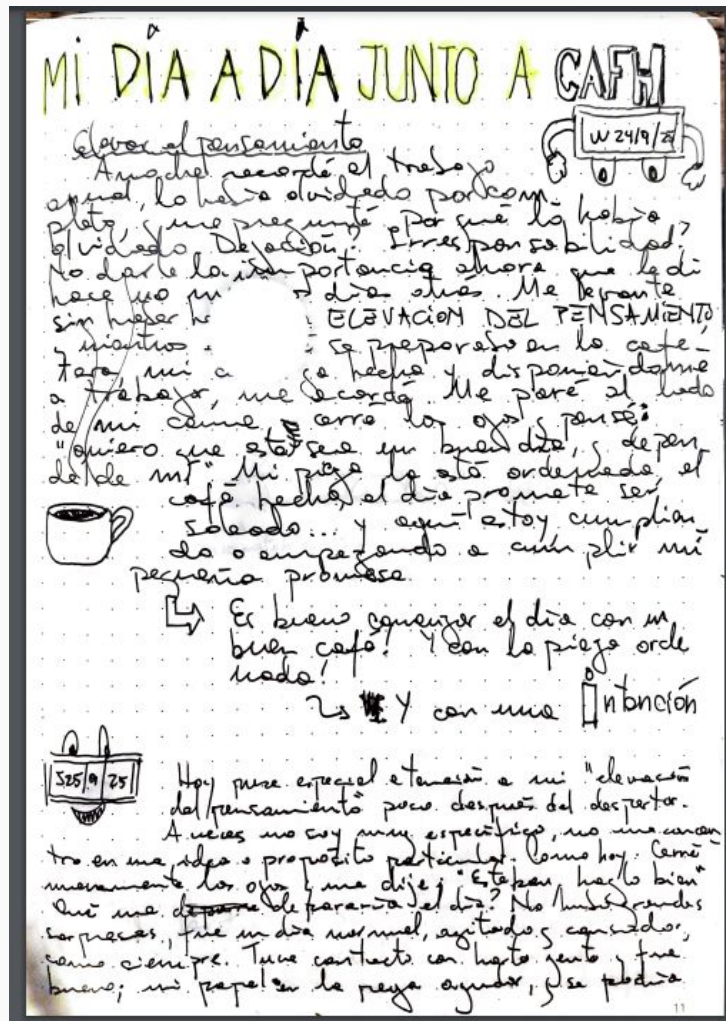 MI DÍA A DÍA JUNTO A CAFH
W 24/9/25
Elevar el pensamiento
Anoche recordé el trabajo
anual, lo había olvidado por com
pleto, y me pregunté ¿Por qué lo había
olvidado? Dejación? Irresponsabilidad?
No darle la importancia ahora que le di
hace no m días atrás. Me levanté
sin hacer ELEVACION DEL PENSAMIENTO
y mientras se preparaba en la cafe
tera mi a hecha y disponiéndome
a trabajar, me acordé. Me paré al lado
de mi cama, cerré los ojos y pensé:
"quiero que este sea un buen día, y depen
de de mí" Mi pieza ya está ordenada, el
café hecho, el día promete ser
soleado... y aquí estoy cumplien
do o empezando a cumplir mi
pequeña promesa
Es bueno comenzar el día con un
buen café! Y con la pieza orde
nada!
Y con una Intención
J25/9/25
Hoy puse especial atención a mi "elevación
del pensamiento" poco después del despertar.
A veces no soy muy específico, no me concen
tro en una idea o propósito particular. Como hoy. Cerré
nuevamente los ojos y me dije: "Esteban hazlo bien"
Qué me depararía el día? No hubo grandes
sorpresas, fue un día normal, agitado y cansador,
como siempre. Tuve contacto con harta gente y fue
bueno; mi papel en la pega ayudar, y se podría
11